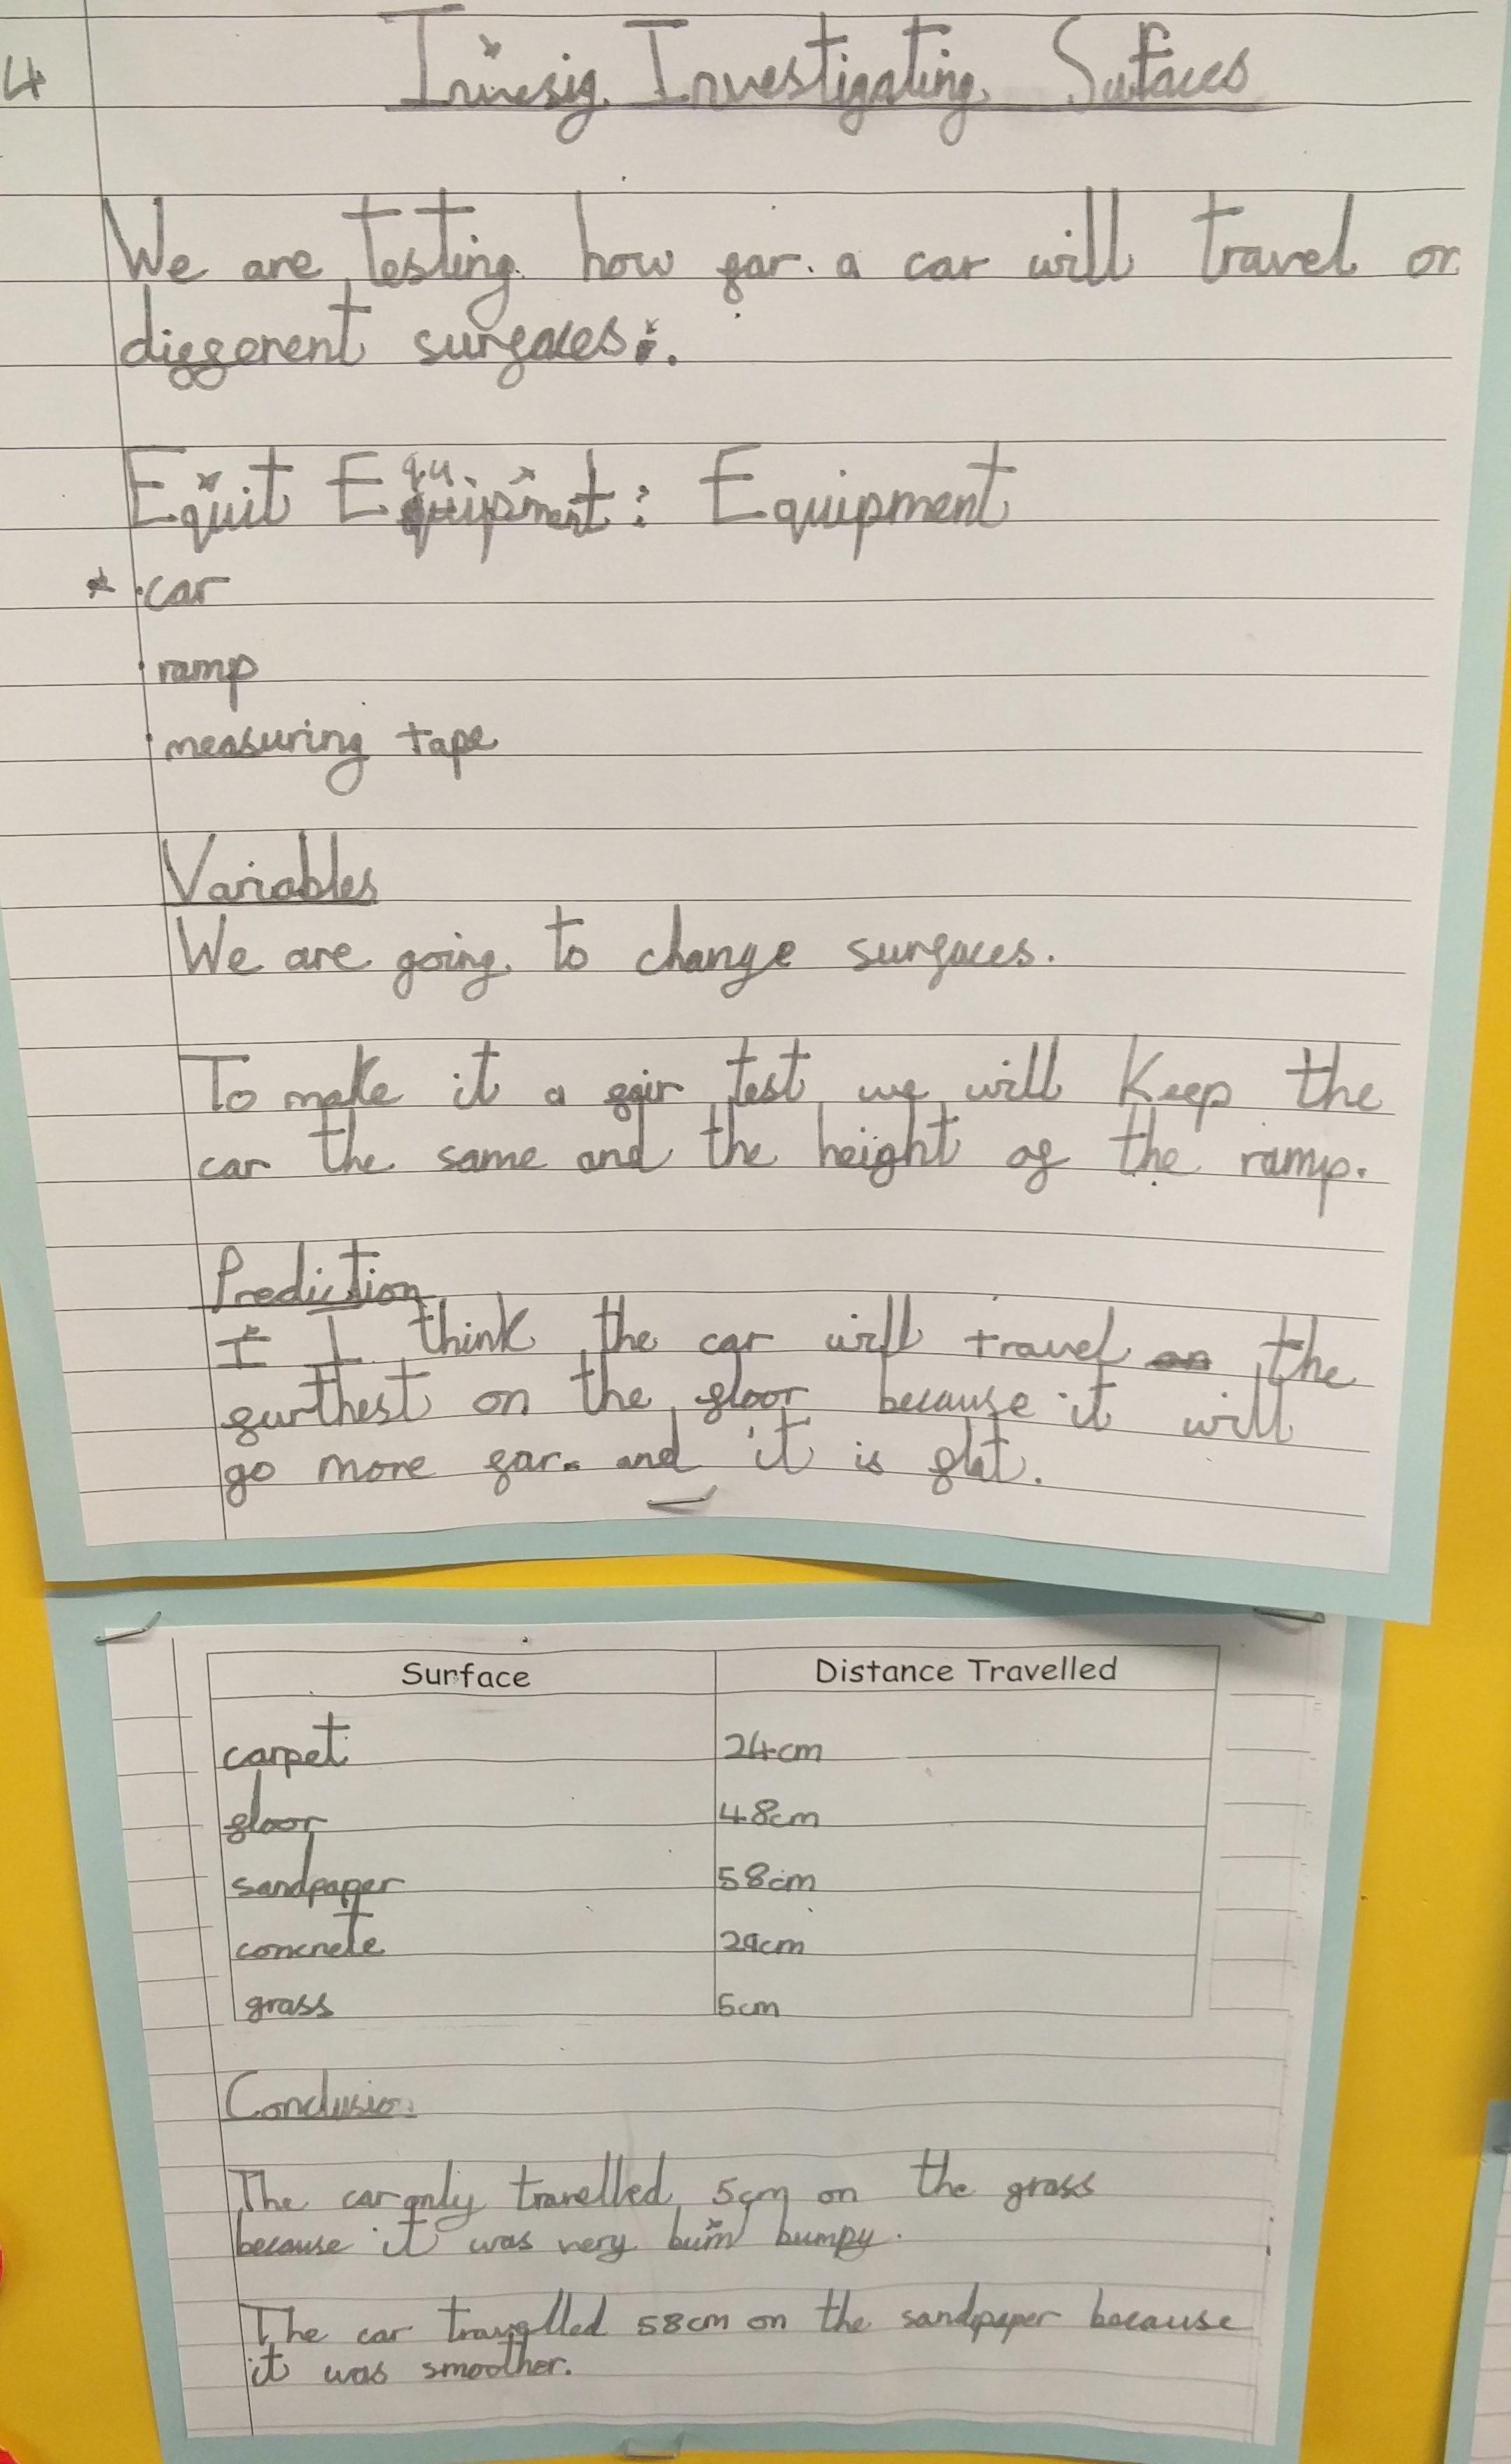 4
Invesig Investigating Sufaces
We are testing how far a car will travel on
different surfaces.
Equit Equipment: Equipment
car
ramp
measuring tape
Variables
We are going to change surfaces.
To make it a fair test we will keep the
car the same and the height of the ramp.
Prediction
I I think the car will travel on the
furthest on the floor because it will
go more far. and it is flat.
Surface Distance Travelled
carpet 24cm
floor 48cm
sandpaper 58cm
concrete 29cm
grass 5cm
Conclusion
The car only travelled 5cm on the grass
because it was very bum bumpy.
The car travelled 58cm on the sandpaper because
it was smoother.